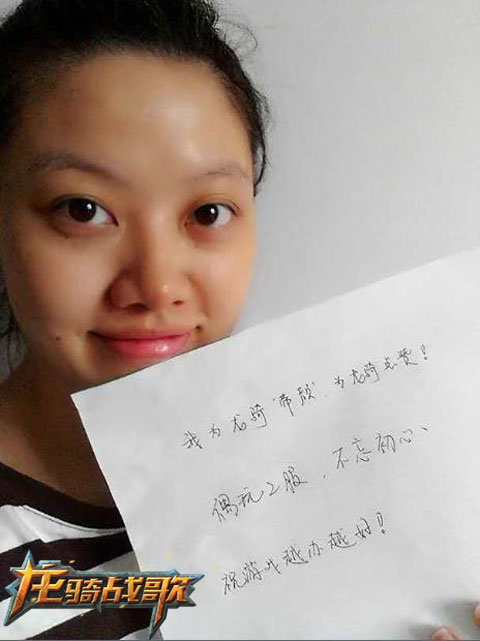 我为龙骑“带颜”.为龙骑点赞！
偶玩2服，不忘初心、
祝游戏越办越好！
龙骑战歌